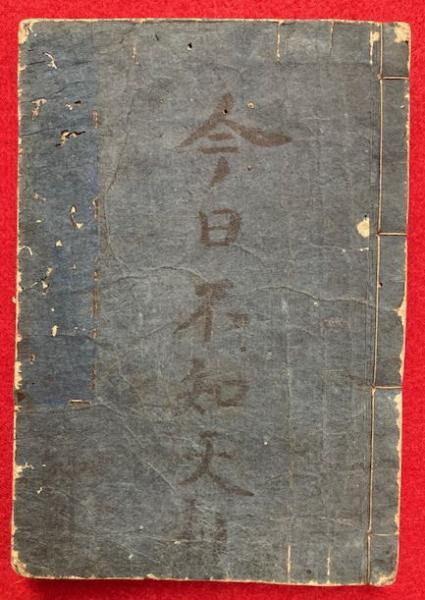 今日不知天